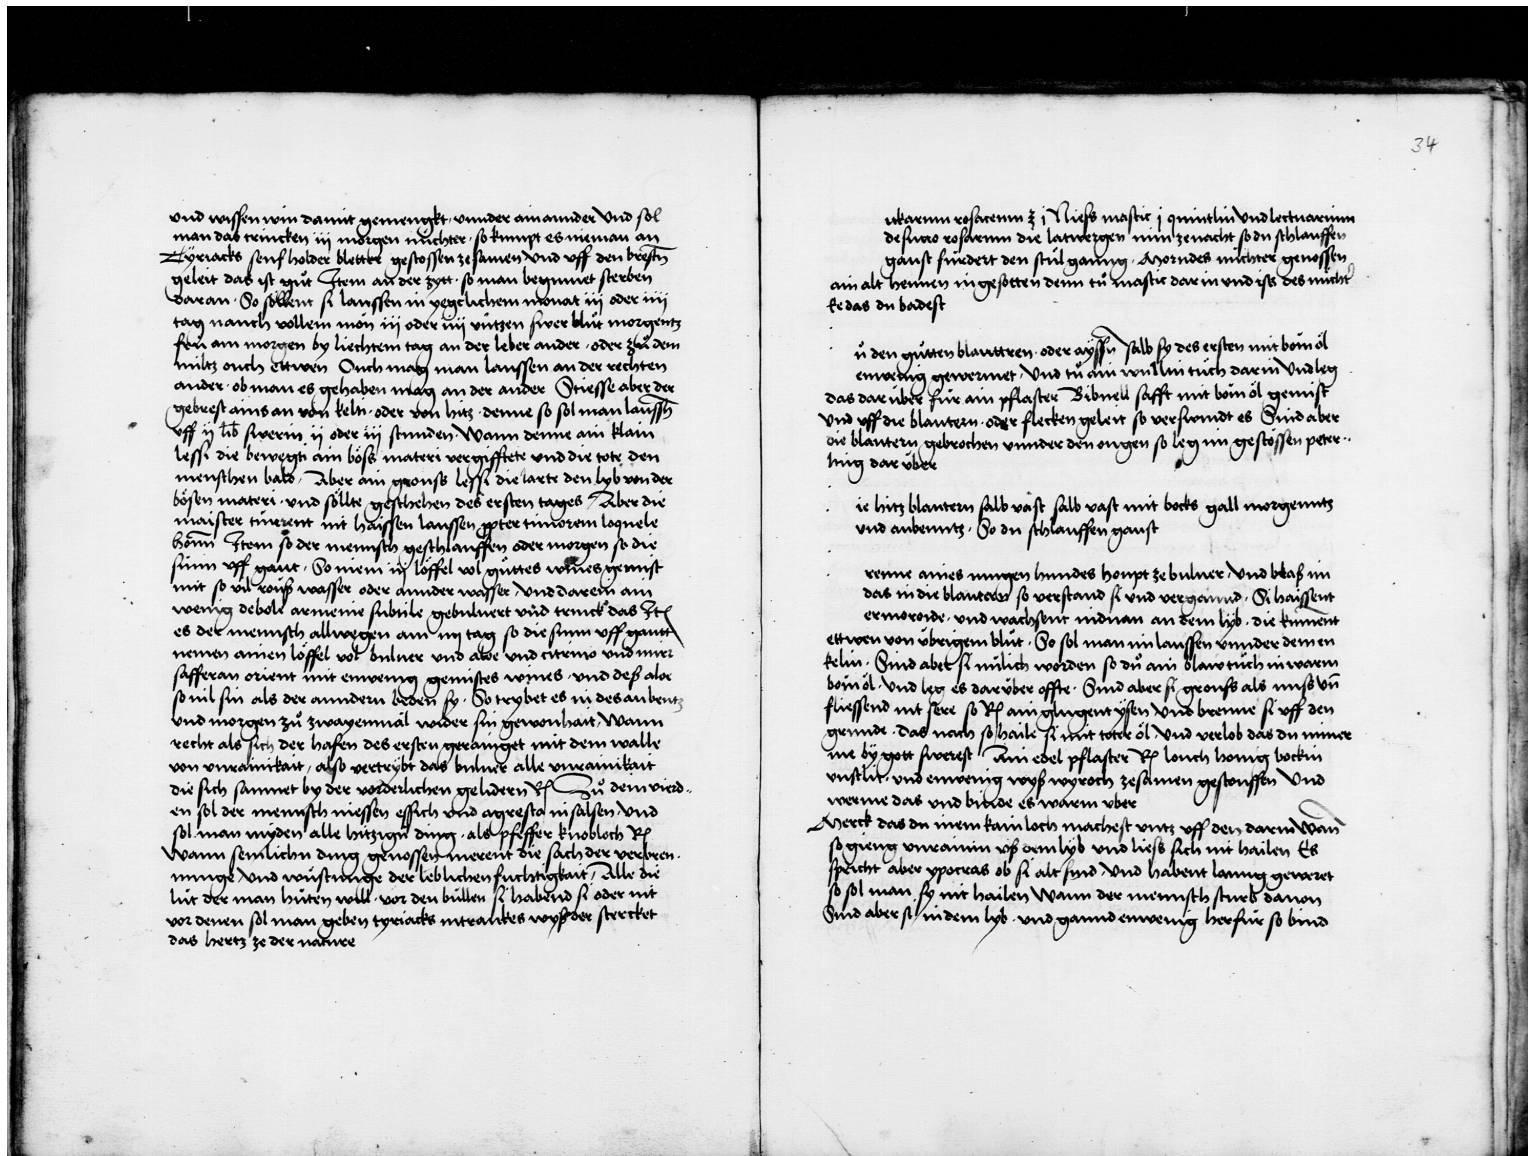 und wissen win damit gemengkt vnnder ainannder Vnd sol
man das trincken iij morgen nüchter · so kumpt es nieman an
Tÿriacks senf holder bletter gestossen zesamen Vnd vff den bresten
geleit das ist gůt Item an der zytt · so man begynnet sterben
daran · So söllent si laussen in yegclichem monat iij oder iiij
tag nauch vollem mön iij oder iiij vntzen swer blůt morgentz
frů am morgen by liechtem tag an der leber ander · oder zů dem
miltz ouch ettwen Ouch mag man laussen an der rechten
ander · ob man es gehaben mag an der ander Stiesse aber der
gebrest ains an von keltin · oder von hitz · denne so sol man laussen
vff ij lib swerin ij oder iij stunden · Wann denne ain klain
lessi die bewegti ain böss materi vergifftete vnd die tote den
menschen bald / Aber ain grouss lessi die larte den lyb von der
bösen materi · vnd söllte geschehen des ersten tages / Aber die
maister türrent nit haissen laussen propter timorem loquele
homin Item so der mennsch geschlauffen oder morgen so die
sunn vff gaut · So niem iij löffel vol guttes wines gemist
mit so vil rouß wasser oder annder wasser / Vnd darein ain
wenig deboli armenie subtile gebuluert vnd trinck das Item
es der mennsch allwegen am iiij tag so die sunn vff gautt
nemen ainen löffel vol buluer vnd aloe vnd citrino vnd mirr
safferan orient mit enwenig gemistes wines · vnd deß aloe
so vil sin als der anndern beden sy · So trybet es in des aubentz
vnd morgen zů zwayenmäl wider sin gewonhait / Wann
recht als sich der hafen des ersten gerainiget mit dem walle
von vnrainikait / also vertrÿbt das buluer alle vnrainikait
die sich samnet by der vorderlichen gelidern Rc Zů dem vierd-
en sol der mennsch niessen essich vnd agresta in salsen · Vnd
sol man myden alle hitzigu ding · als pfeffer knobloch Rc
Wann semlichu ding genossen merent die sach der verbren-
nunge Vnd wüstunge der lieblichen fuchtigkait / Alle die
lüt der man hüten will · vor den büllen si habend si oder nit
vor denen sol man geben tyriacks intranckes wyß der stercket
das hertz ze der nature
34
ukarum rosacenum ʒ j Niess mastic j quintlin Vnd lectuarium
desucco rosarum die latwergen nim zenacht so du schlauffen
gaust fürdert den stůl ganng · Morndes nüchter genossen
ain alt hennen in gesotten denn tů mastic dar in und iss des nücht
ke das du badest
ů den gůtten blauttren · oder ayssen salb sy des ersten mit bom öl
enwenig gewermet / Vnd tů ain wullin tůch dar in Vnd leg
das dar über für ain pflaster Bibnell safft mit bom öl gemist
Vnd vff die blautern · oder flecken geleit so verswindt es Sind aber
die blautern gebrochen vnnder den ougen so leg im gestossen peter-
ling dar über
ie hitz blautern salb vast salb vast mit bocks gall morgenntz
vnd aubenntz · So du schlauffen gaust
renne aines iungen hundes houpt ze buluer / Vnd blaß im
das in die blautern so verstand si vnd vergannd · Si haissent
ermoroide · vnd wachsent in dnan an dem lyb · die kument
ettwen von übrigem blůt · So sol man im laussen vnnder dem en
kelin · Sind aber si nülich worden so du ain blaw tůch in warm
bom öl · Vnd leg es dar über offte · Sind aber si grouss als nuss vn
fliessend nit sere so Rc ain glugent ysen Vnd brenne si vff den
grunde · das nach so haile si mit toter öl Vnd verlob das du nimer
me bÿ gott swerest / Ain edel pflaster Rc louch honig bockin
vnslit · vnd enwenig wyß wyroch zesamen gestouffen Vnd
werme das vnd binde es warm vber
Merck das du inem kain loch machest vntz vff den darm Wan
so gieng vnrainin vß dem lÿb vnd liess sich nit hailen Es
spricht aber ypocras ob si alt sind · Vnd habent lanng geweret
so sol man sy nit hailen Wann der mennsch sturb dauon
Sind aber si indem lyb · vnd gannd enwenig her für so bind